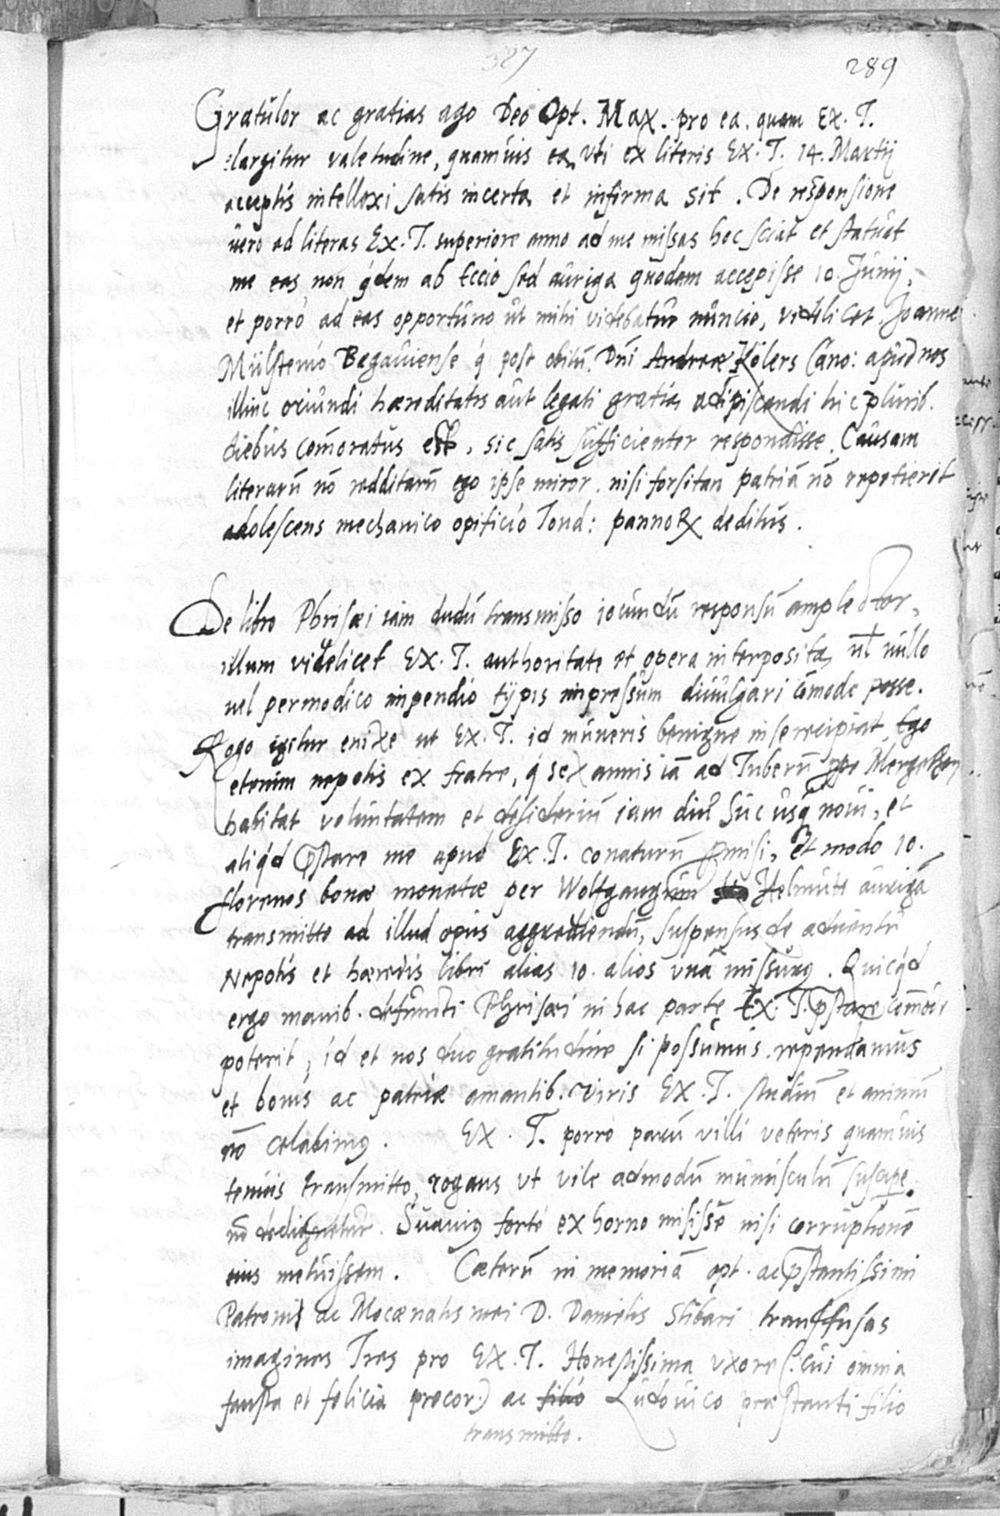 387 289
Gratulor ac gratias ago Deo Opt. Max. pro ea, quam Ex. T.
elargitur valetudine, quamuis ea, vti ex literis Ex. T. 14. Martij
acceptis intellexi satis incerta et infirma sit. De responsione
uero ad literas Ex. T. superiore anno ad me missas hoc sciat et statuat
me eas non qdem ab Eccio sed auriga quodam accepisse 10. Junij,
et porro ad eas opportuno ut mihi videbatur nuncio, videlicet Joanne
Begauiense q post obitū Dni Andreae Kölers Cano: apud nos
illinc oriundi haereditatis aut legati gratia adipiscendi hic plurib.
diebus comoratus est, sic satis sufficienter respondisse. Causam
literarū nō redditarū ego ipse miror, nisi forsitan patriā nō repetierit
adolescens mechanico opificio Tond: pannoꝝ deditus.
De libro Phrisaei iam dudū transmisso iocundū responsū amplector,
illum videlicet Ex. T. authoritate et opera interposita, ul nullo
uel permodico inpendio typis impressum diuulgari comode posse.
Rogo igitur enixe ut Ex. T. id muneris benigne in se recipiat. Ego
etenim nepotis ex fratre, q sex annis iā ad Tuberū
habitat voluntatem et desiderium iam diu huc usq noui, et
aliqd pstare me apud Ex. T. conaturū pmisi, et modo 10.
florenos bonae monetae per Wolfgangum Helmutt aurigā
transmitto ad illud opus aggrediendū, suspensus de aduentu
Nepotis et haeredis libri alias 10. alios vnā missurus. Quicqd
ergo manib. defuncti Phrisaei in hac parte Ex. T. pstare
poterit, id et nos duo gratitudine si possumus rependamus
et bonis ac patriae amantib. viris Ex. T. studiū et animū
nō celabimus. Ex. T. porro parū villi veteris quamuis
tenuis transmitto, rogans vt vile admodū munusculū suscipe
nō dedignetur. Suauius forte ex horno misissē nisi corruptionē
eius metuissem. Caeterū in memoriā opt. ac pstantissimi
Patroni ac Mecaenatis mei D. Danielis Stibari transfusas
imagines Tres pro Ex. T. Honestissima vxore (: cui omnia
fausta et felicia precor:) ac filio Ludouico praestanti filio
transmitto.